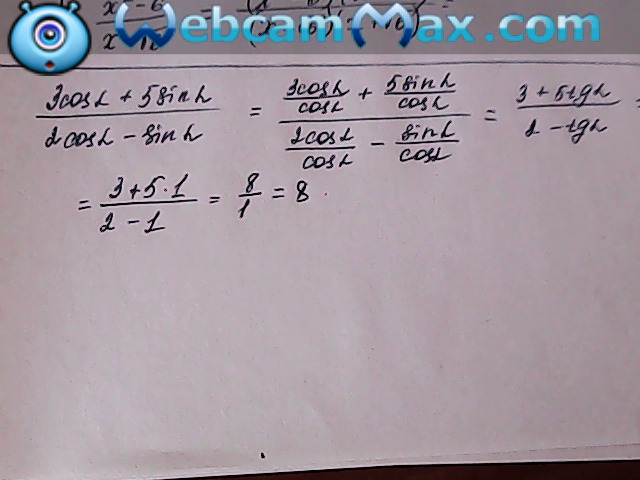 WebcamMax.com
(3cosα + 5sinα)/(2cosα - sinα) = (3cosα/cosα + 5sinα/cosα)/(2cosα/cosα - sinα/cosα) = (3 + 5tgα)/(2 - tgα) =
= (3 + 5·1)/(2 - 1) = 8/1 = 8